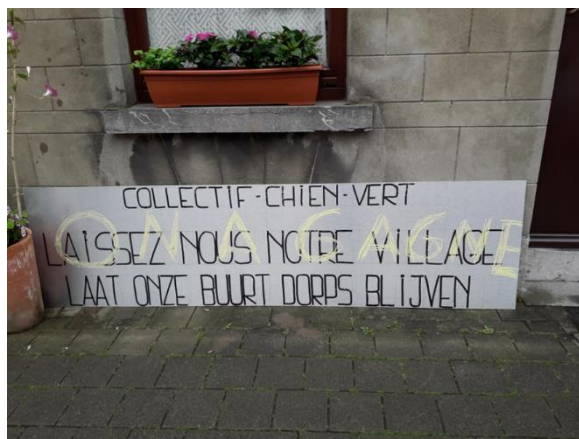 COLLECTIF-CHIEN-VERT
ON A GAGNE
LAISSEZ NOUS NOTRE VILLAGE
LAAT ONZE BUURT DORPS BLIJVEN